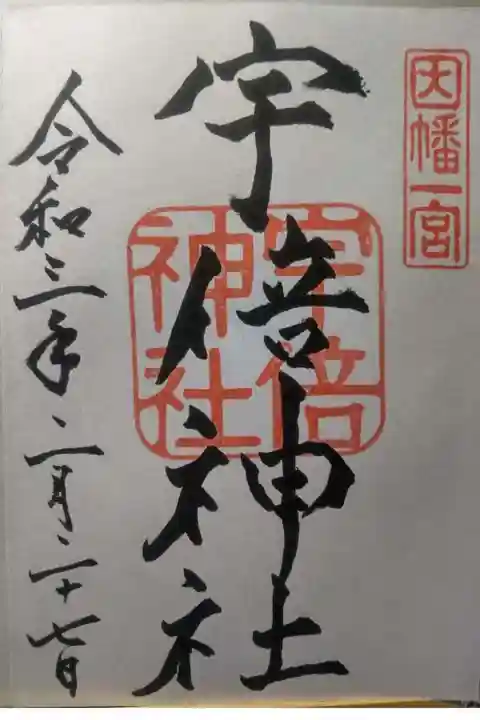 因幡一宮
宇倍神社
宇倍
神社
令和三年二月二十七日